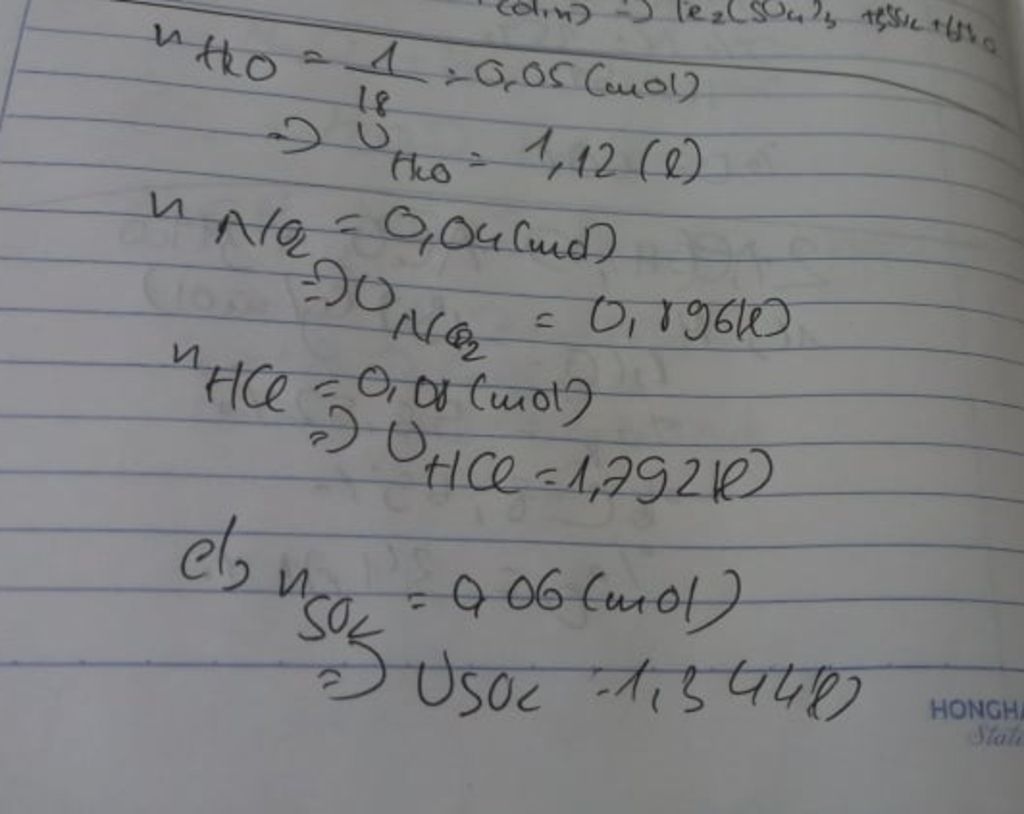 (đ,n) => Fe₂(SO₄)₃ + 3SO₂ + 6H₂O
n H₂O = 1/18 = 0,05 (mol)
=> V H₂O = 1,12 (l)
n NO₂ = 0,04 (mol)
=> V NO₂ = 0,896 (l)
n HCl = 0,08 (mol)
=> V HCl = 1,792 (l)
e), n SO₂ = 0,06 (mol)
=> V SO₂ = 1,344 (l)
HONGHA
Stati